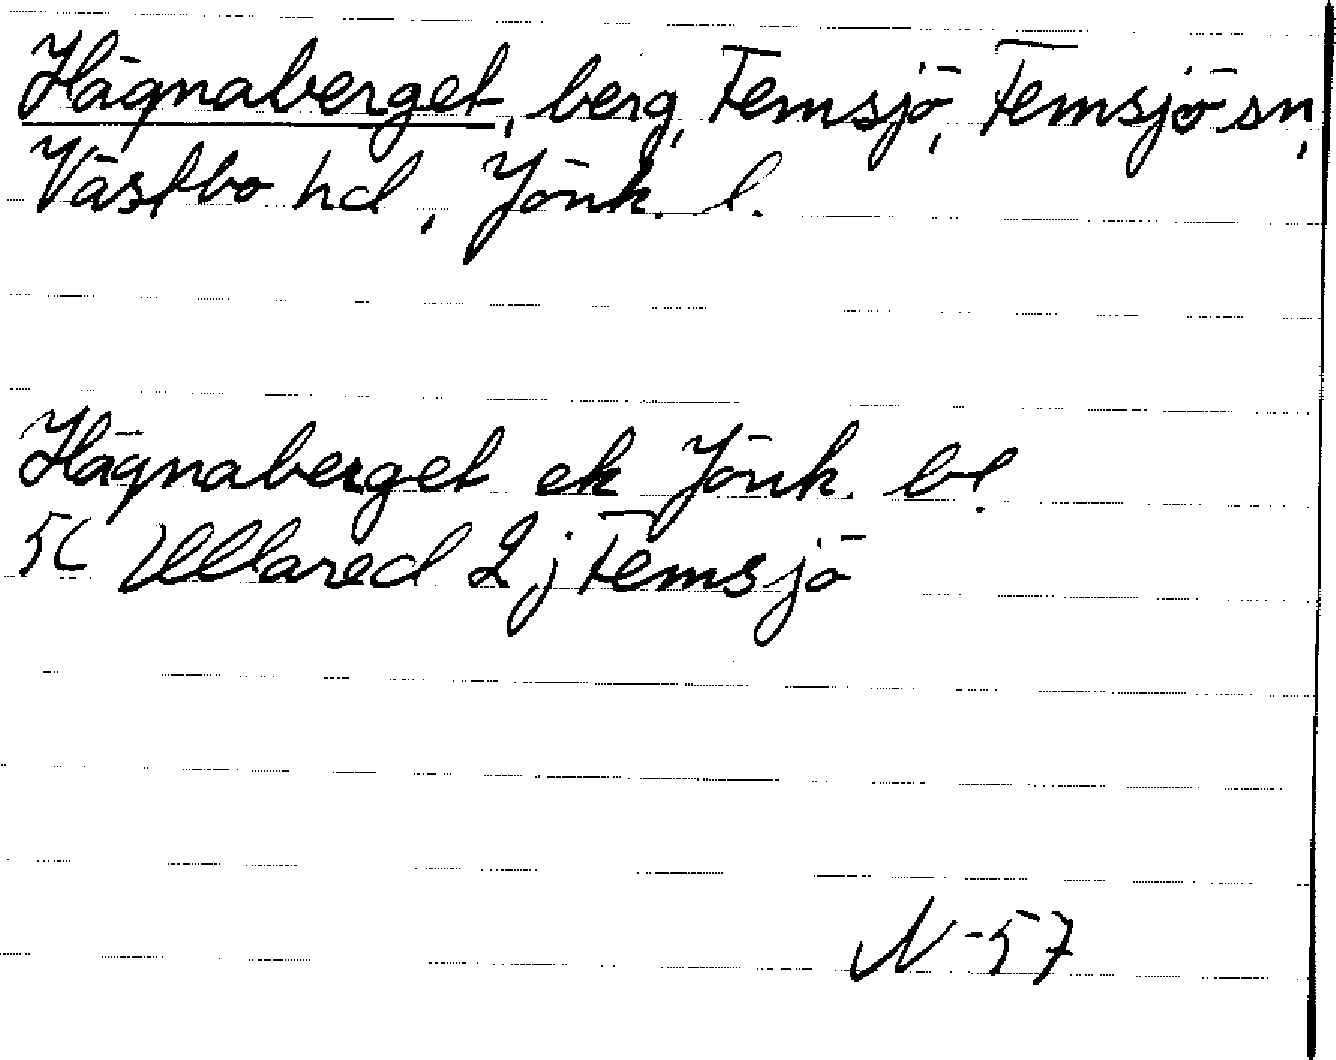 Hägnaberget, berg, Femsjö, Femsjö sn,
Västbo hd, Jönk. l.
Hägnaberget ek Jönk. bl.
5C Ullared 2j Femsjö
N-57